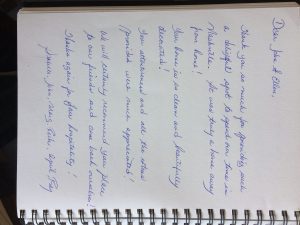 Dear Jon & Ellen,
Thank you so much for providing such
a delightful spot to spend our time in
Nashville. It was truly a home away
from home!
Your home is so clean and beautifully
decorated!
Your attention and all the extras
provided were much appreciated!
We will certainly recommend your place
to our friends and come back ourselves!
Thanks again for your hospitality!